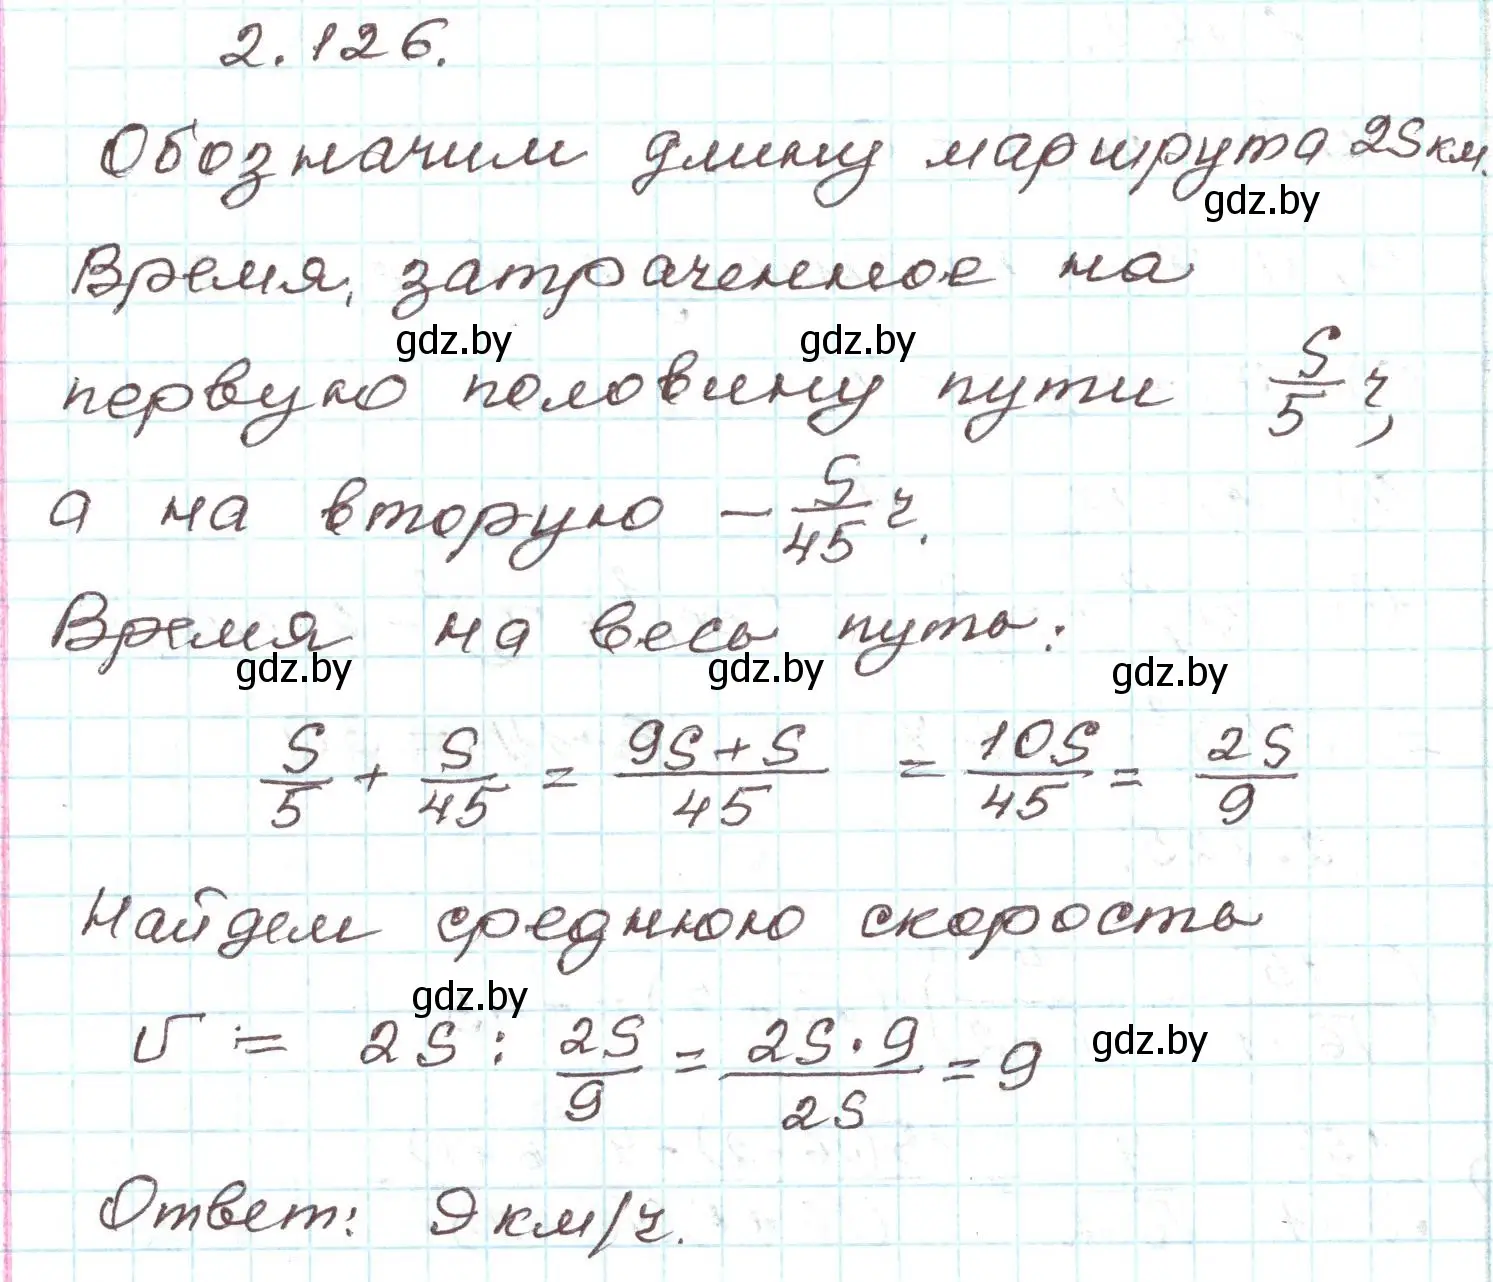 2.126.
Обозначим длину маршрута 2S км.
gdz.by
Время, затраченное на
gdz.by gdz.by
первую половину пути S/5 ч,
а на вторую – S/45 ч.
Время на весь путь:
gdz.by gdz.by gdz.by
S/5 + S/45 = 9S+S/45 = 10S/45 = 2S/9
Найдем среднюю скорость
gdz.by
V = 2S : 2S/9 = 2S·9/2S = 9 gdz.by
Ответ: 9 км/ч.